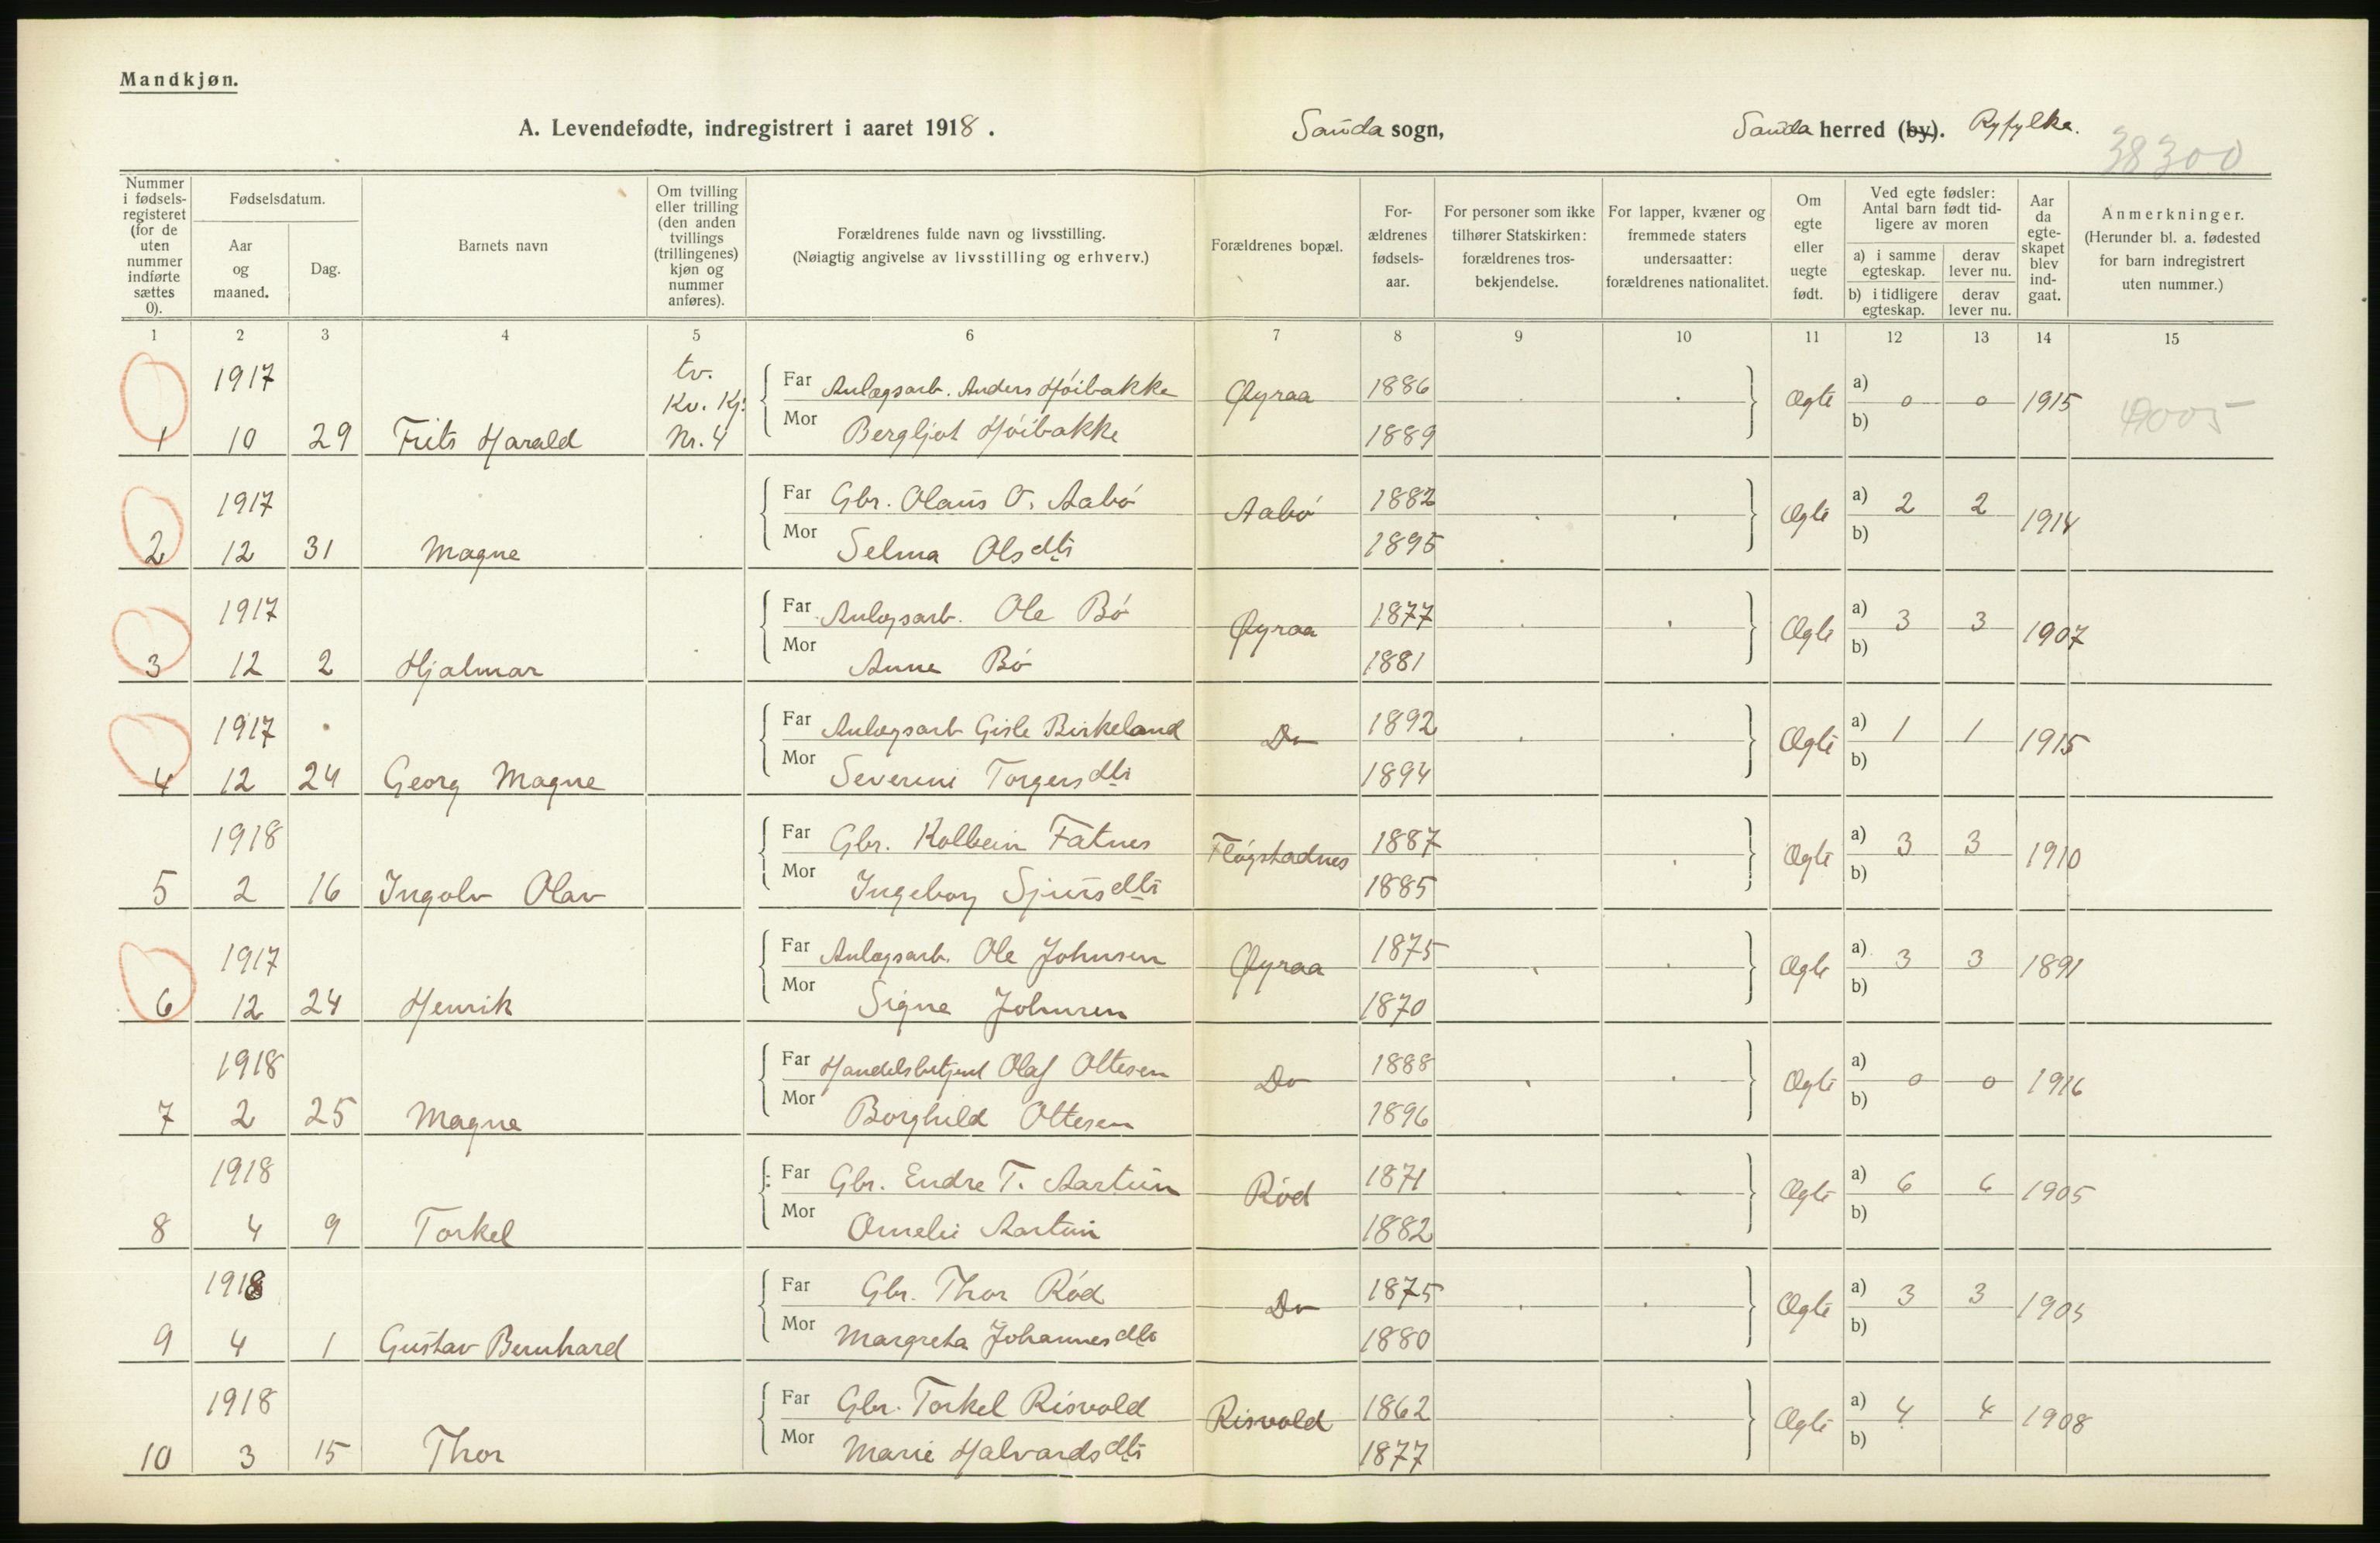 Mandkjøn.
A. Levendefødte, indregistrert i aaret 1918.
Sauda sogn,
Sauda herred (by). Ryfylke.
38300
Nummer i fødsels-registeret (for de uten nummer indførte sættes 0).
Fødselsdatum.
Aar og maaned.
Dag.
Barnets navn
Om tvilling eller trilling (den anden tvillings (trillingenes) kjøn og nummer anføres).
Forældrenes fulde navn og livsstilling.
(Nøiagtig angivelse av livsstilling og erhverv.)
Forældrenes bopæl.
For-ældrenes fødsels-aar.
For personer som ikke tilhører Statskirken: forældrenes tros-bekjendelse.
For lapper, kvæner og fremmede staters undersaatter: forældrenes nationalitet.
Om egte eller uegte født.
Ved egte fødsler: Antal barn født tid-ligere av moren
a) i samme egteskap.
derav lever nu.
b) i tidligere egteskap.
derav lever nu.
Aar da egte-skapet blev ind-gaat.
Anmerkninger.
(Herunder bl. a. fødested for barn indregistrert uten nummer.)
1 2 3 4 5 6 7 8 9 10 11 12 13 14 15
1917 tv. Kv. Kj. Far Anlægsarb. Anders Høibakke Øyraa 1886 Ægte a) 0 0 1915
1 10 29 Frits Harald Nr. 4 Mor Bergljot Høibakke 1889 b)
1917 Far Gbr. Olaus O. Aabø Aabø 1882 Ægte a) 2 2 1914
2 12 31 Magne Mor Selma Olsdtr 1895 b)
1917 Far Anlægsarb. Ole Bø Øyraa 1877 Ægte a) 3 3 1907
3 12 2 Hjalmar Mor Anne Bø 1881 b)
1917 Far Anlægsarb Gisle Birkeland Do 1892 Ægte a) 1 1 1915
4 12 24 Georg Magne Mor Severine Torgersdtr 1894 b)
1918 Far Gbr. Kolbein Fatnes Fløgstadnes 1887 Ægte a) 3 3 1910
5 2 16 Ingolv Olav Mor Ingeborg Sjursdtr 1885 b)
1917 Far Anlægsarb. Ole Johnsen Øyraa 1875 Ægte a) 3 3 1891
6 12 24 Henrik Mor Signe Johnsen 1870 b)
1918 Far Handelsbetjent Olaf Ottesen Do 1888 Ægte a) 0 0 1916
7 2 25 Magne Mor Borghild Ottesen 1896 b)
1918 Far Gbr. Endre T. Aartun Rød 1871 Ægte a) 6 6 1905
8 4 9 Torkel Mor Amelie Aartun 1882 b)
1918 Far Gbr. Thor Rød Do 1875 Ægte a) 3 3 1905
9 4 1 Gustav Bernhard Mor Margreta Johannesdtr 1880 b)
1918 Far Gbr. Torkel Risvold Risvold 1862 Ægte a) 4 4 1908
10 3 15 Thor Mor Marie Halvardsdtr 1877 b)